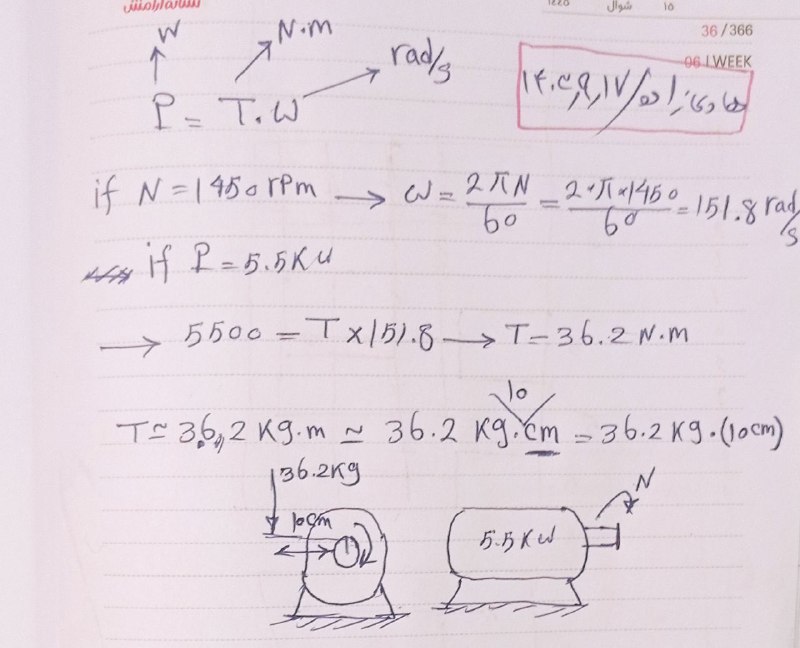 ۱۵ شوال
36/366
06 | WEEK
W N.m rad/s
P = T.ω
if N = 1450 rpm → ω = 2πN/60 = 2×π×1450/60 = 151.8 rad/s
if P = 5.5 KW
→ 5500 = T × 151.8 → T = 36.2 N.m
T ≃ 36.2 Kg.m ≃ 36.2 Kg.cm = 36.2 Kg.(10cm)
10
36.2Kg
10cm
N
5.5 KW